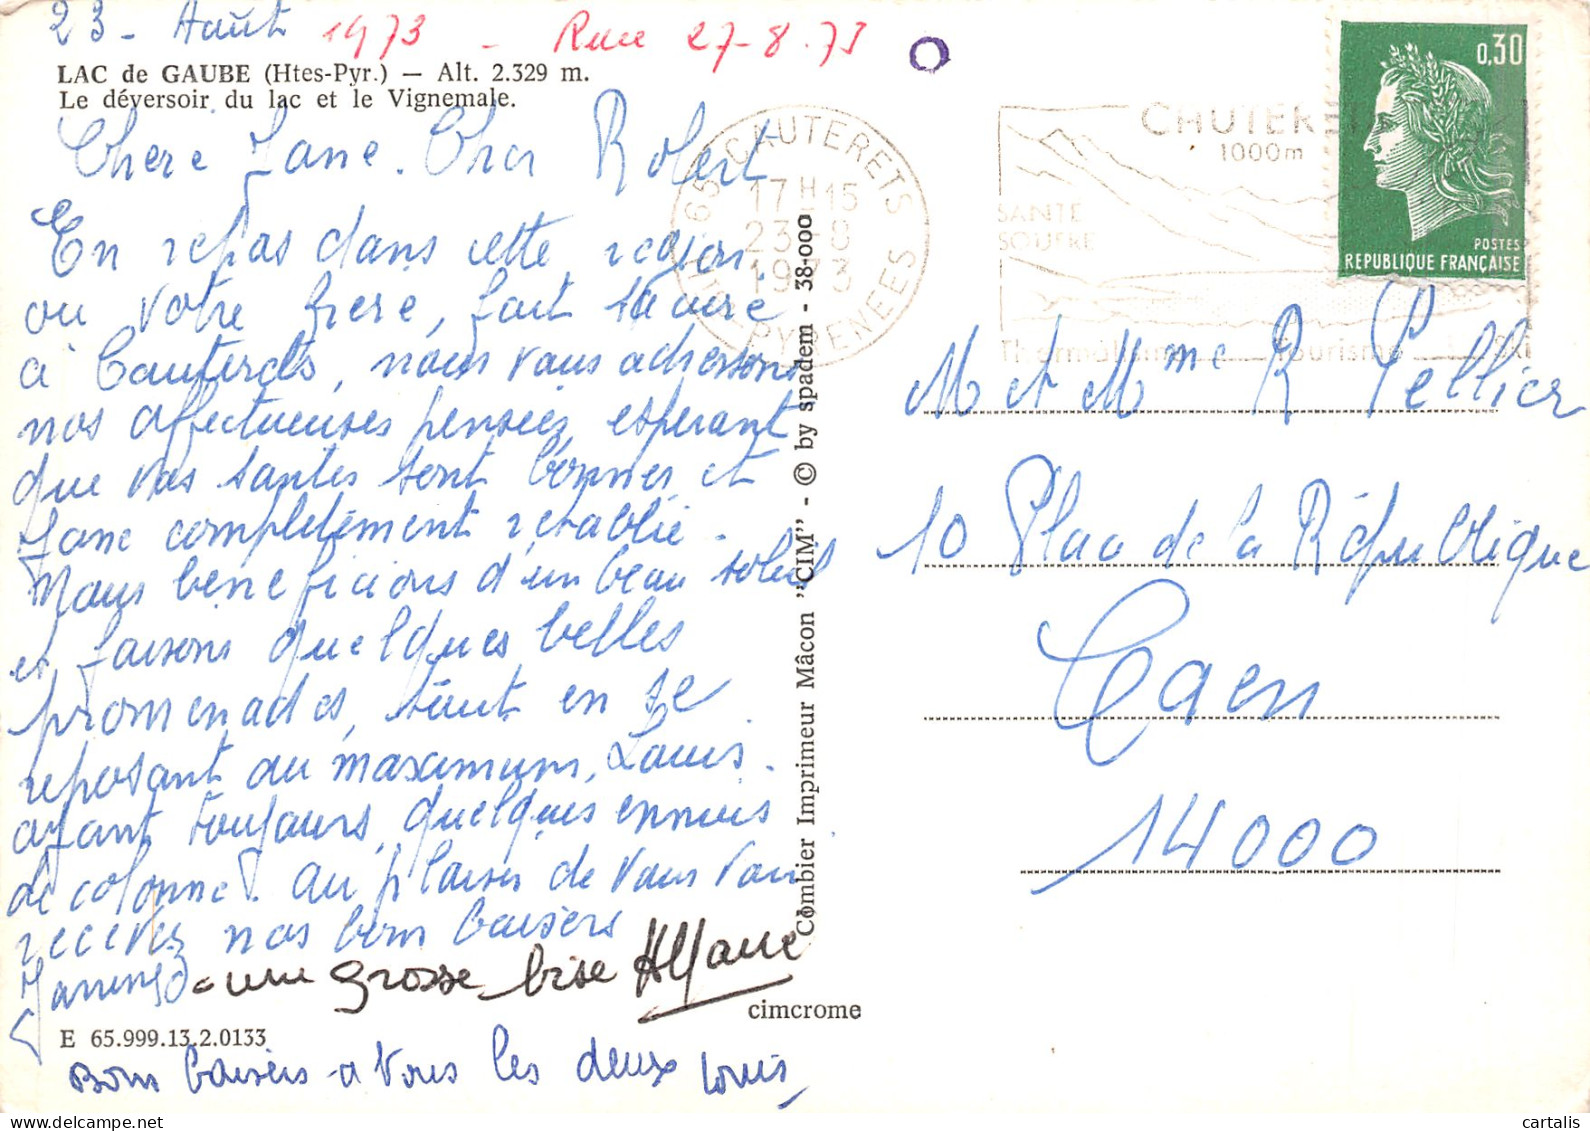 23 - Août 1973 - Rue 27-8.73
LAC de GAUBE (Htes-Pyr.) — Alt. 2.329 m.
Le déversoir du lac et le Vignemale.
Chere Jane. Cher Robert
En repas dans cette region.
ou votre frere, fait sa cure
à Cauterets, nous vous adressons
nos affectueuses pensées, esperant
que vos santes sont bonnes et
Jane completement retablie.
Nous beneficions d'un beau soleil
et faisons quelques belles
promenades, tout en se
reposant au maximum, Louis.
ayant toujours quelques ennuis
de colonne. au plaisir de vous voir
recevez nos bons baisers
une grosse bise
E 65.999.13.2.0133
cimcrome
Bons baisers à vous les deux Louis,
Combier Imprimeur Mâcon "CIM" - © by spadem - 38-000
65 CAUTERETS
17H15
23-8
1973
HTES-PYRENEES
1000m
SANTE
SOUFRE
Thermalisme Tourisme Ski
0,30
POSTES
REPUBLIQUE FRANÇAISE
M et Mme R Pellier
10 Place de la République
Caen
14000